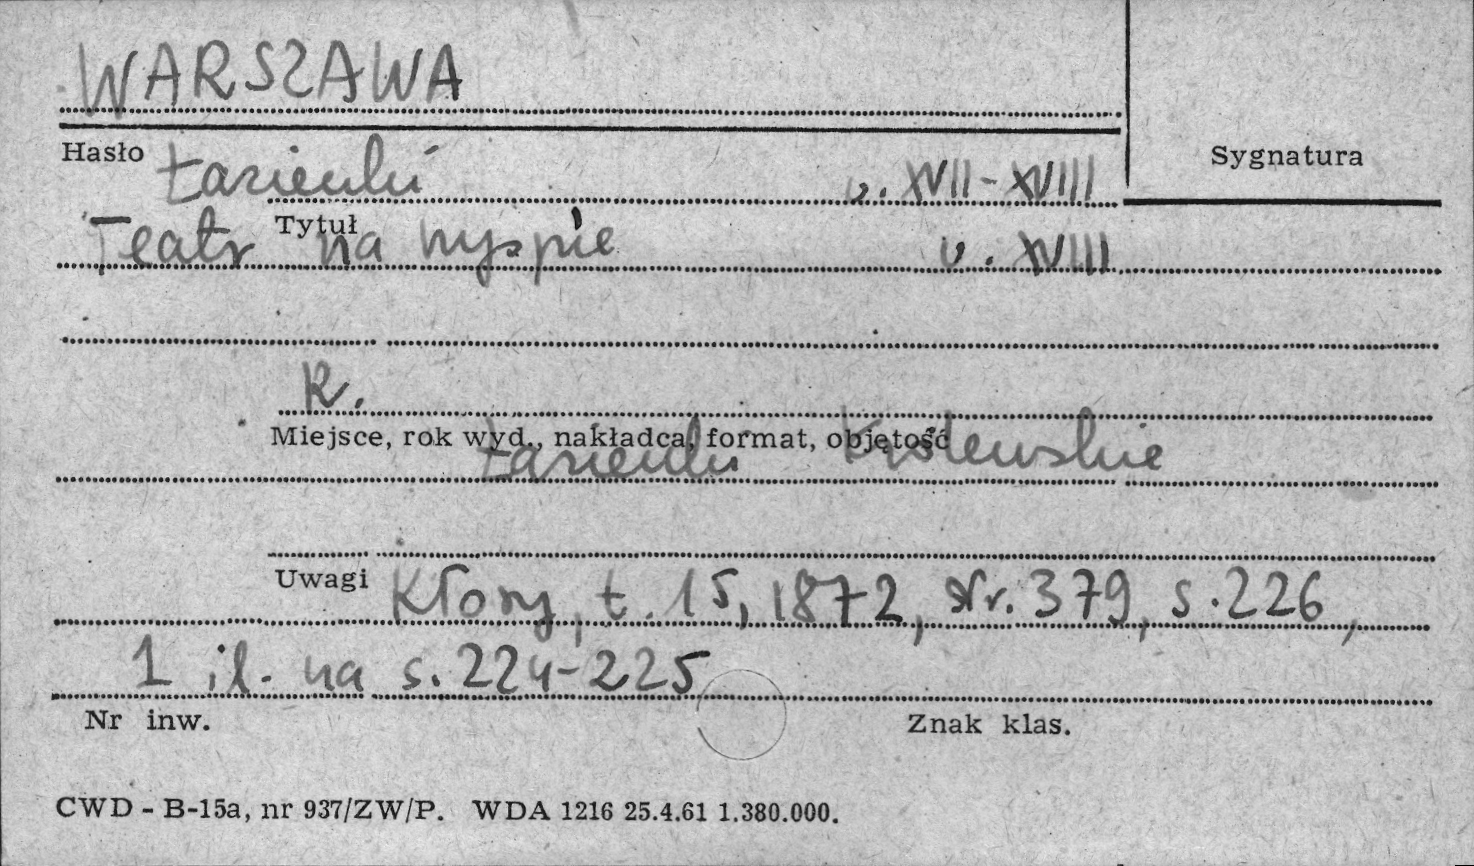 WARSZAWA
Hasło Łazienki w. XVII-XVIII
Sygnatura
Teatr Tytuł na wyspie w. XVIII
K.
Miejsce, rok wyd., nakładca, format, objętość
Łazienki Królewskie
Uwagi Kłosy, t. 15, 1872, Nr. 379, s. 226,
1 il. na s. 224-225
Nr inw. Znak klas.
CWD - B-15a, nr 937/ZW/P. WDA 1216 25.4.61 1.380.000.